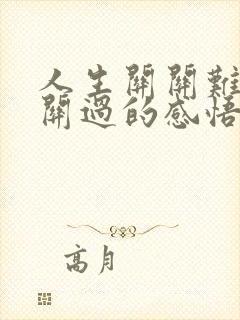 人生關關難
關過的感悟
高月